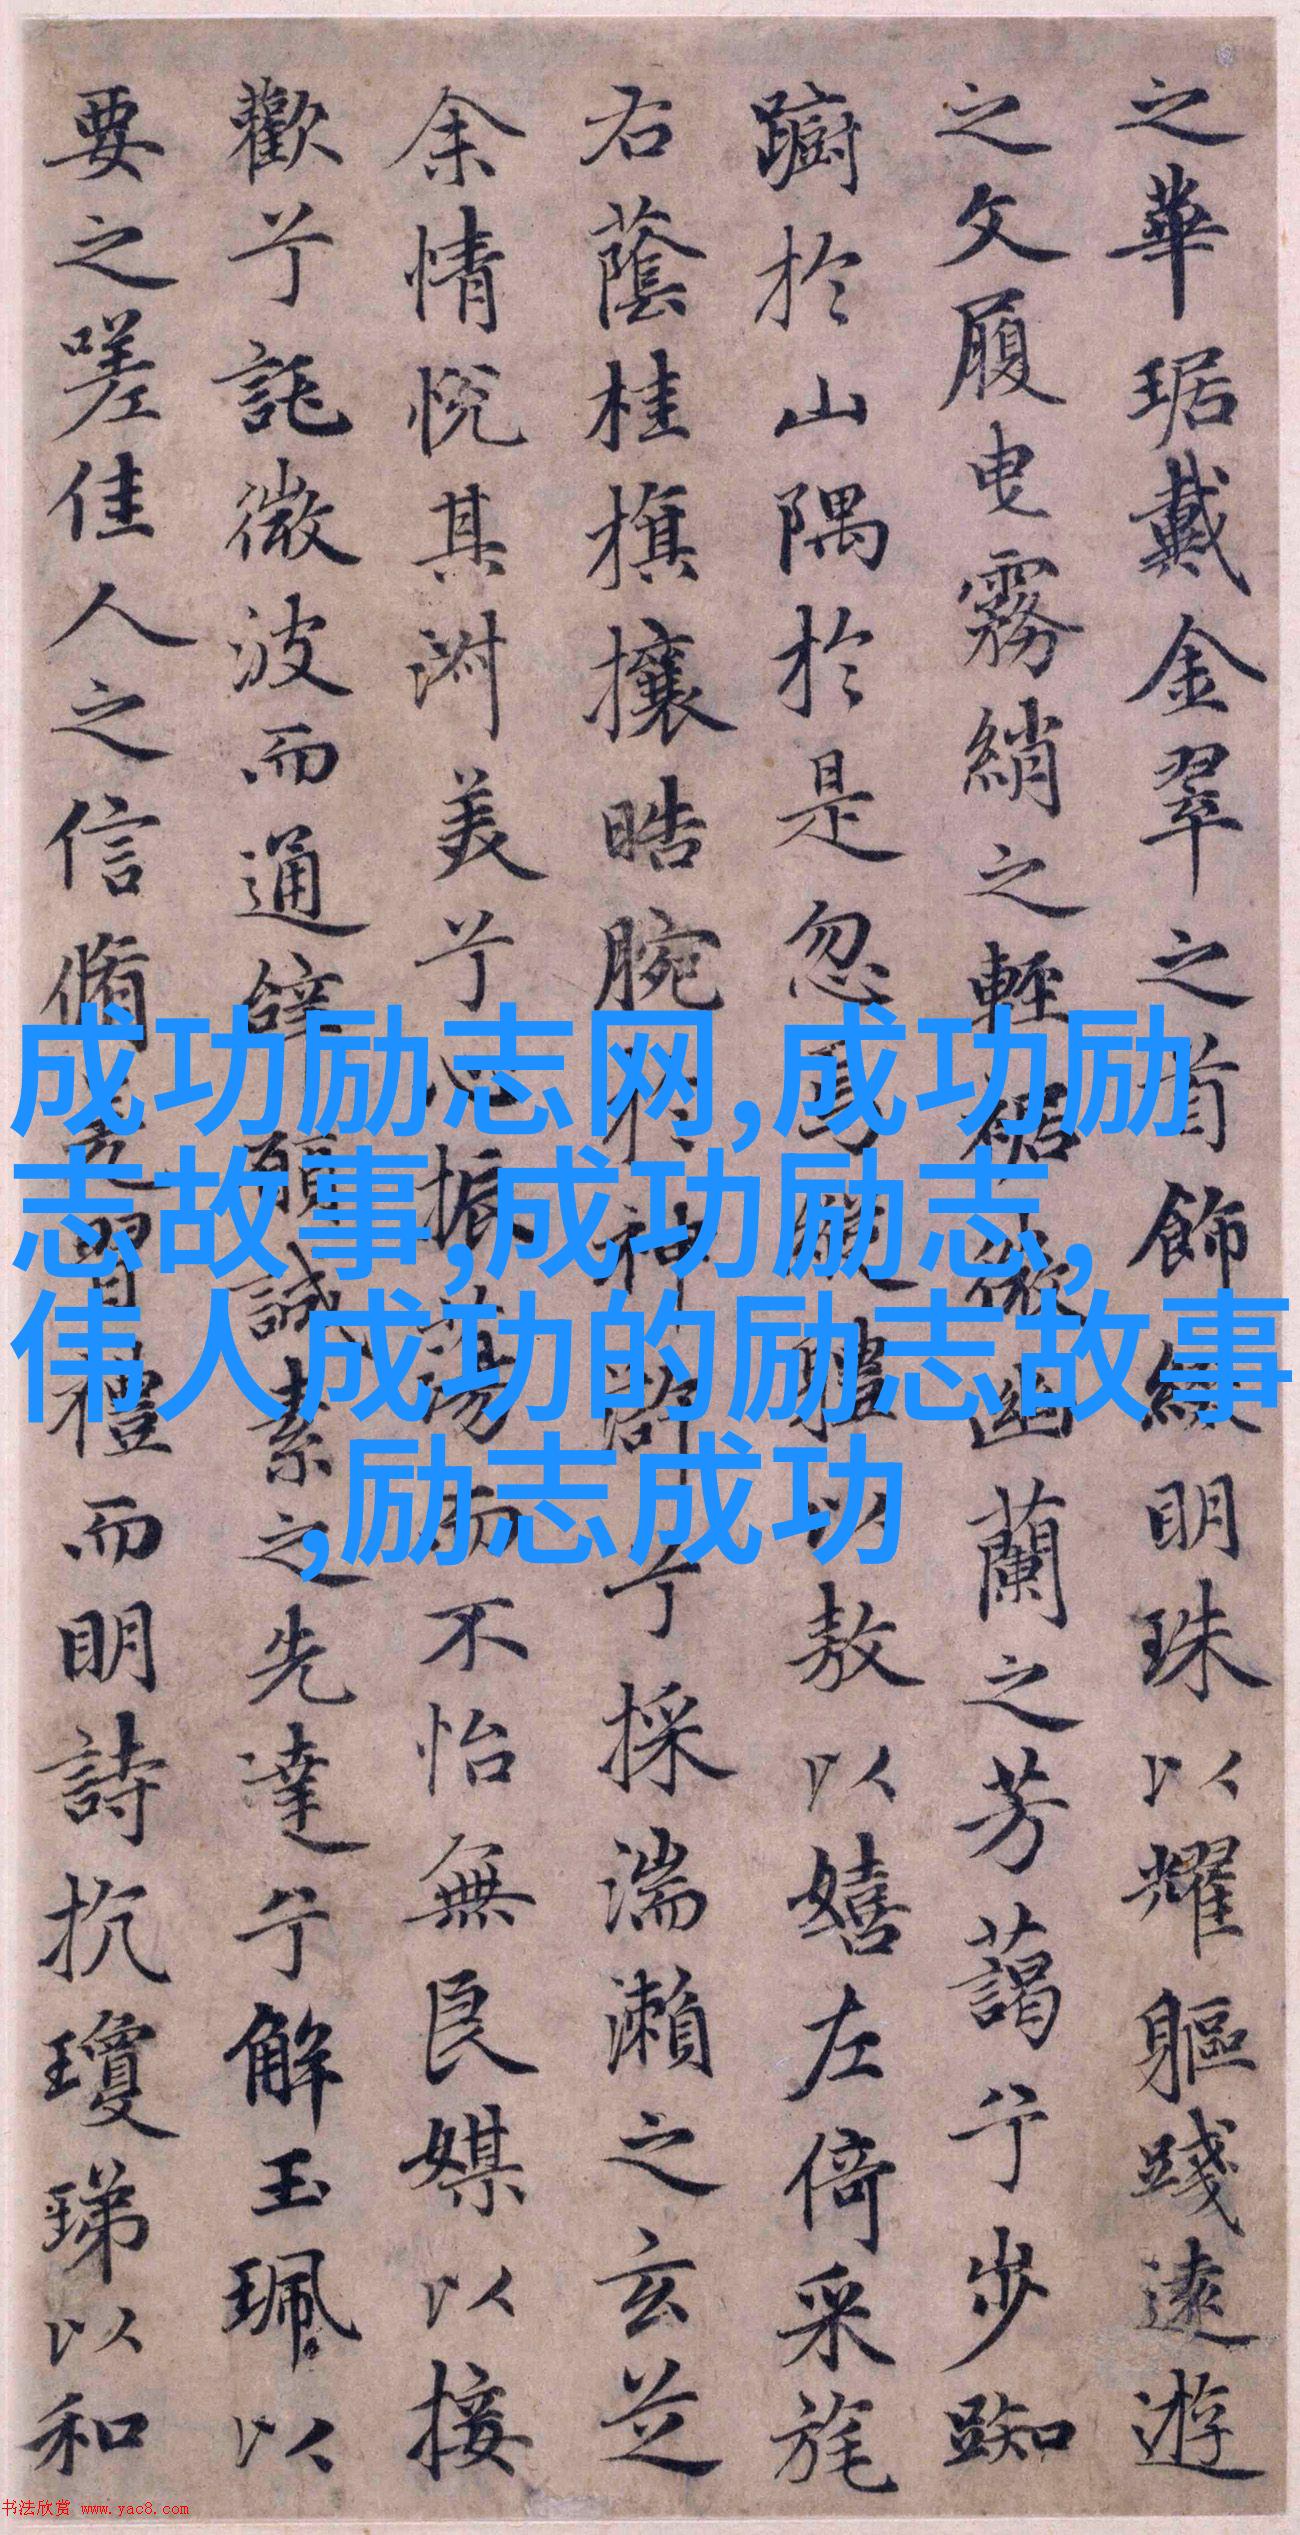 之華琚戴金翠之首飾綴明珠以耀軀踐遠遊
之文履曳霧綃之輕裾微幽蘭之芳藹兮步踟
躕於山隅於是忽焉縱體以敖以嬉左倚采旄
右蔭桂旗攘晧腕於神滸兮採湍瀨之玄芝
余情悅其淑美兮心振蕩而不怡無良媒以接
歡兮託微波而通辭願誠素之先達兮解玉珮以
要之嗟佳人之信脩羌習禮而明詩抗瓊珶以和
成功励志网,成功励
志故事,成功励志,
伟人成功的励志故事
,励志成功
书法欣赏 www.yac8.com